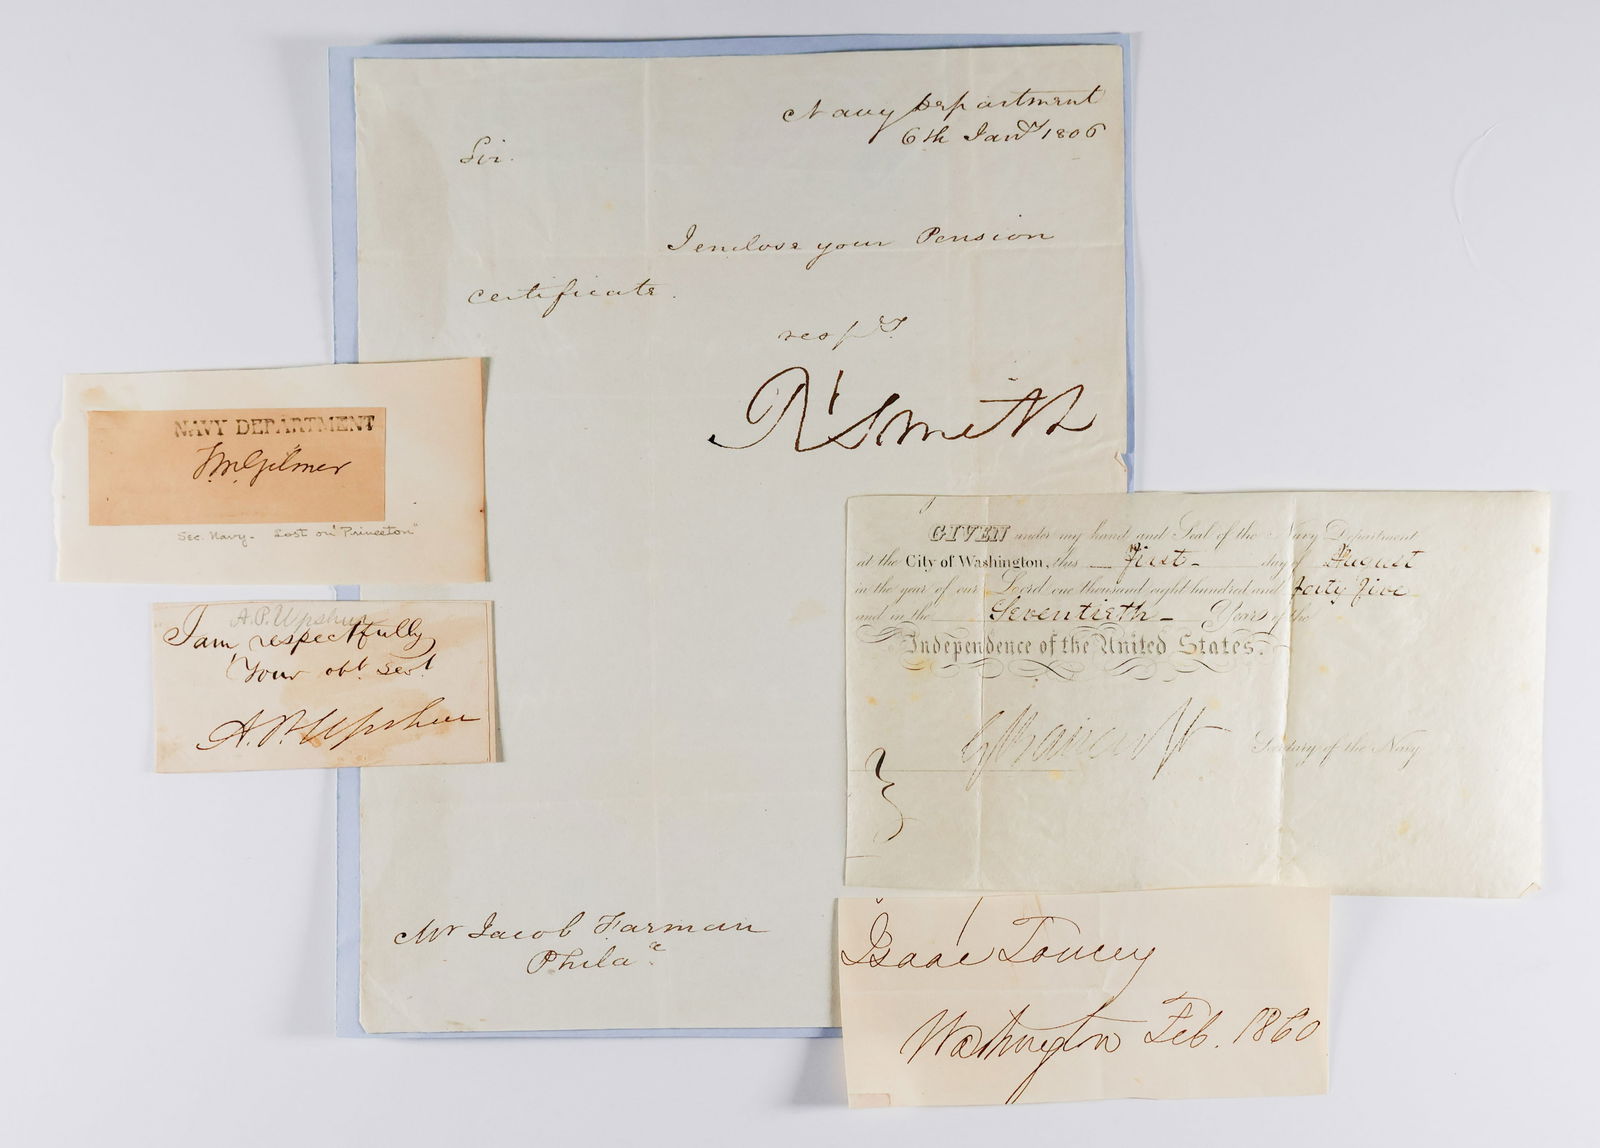 Navy Department
6th Jany 1806
Sir.
I enclose your Pension
certificate.
respy.
Rt Smith
Mr Jacob Farman
Phila
NAVY DEPARTMENT
Gilmer
Sec. Navy - Lost on "Princeton"
A. P. Upshur
I am, respectfully
Your obt. Sevt.
A. P. Upshur
GIVEN under my hand and Seal of the Navy Department
at the City of Washington, this first day of August
in the year of our Lord one thousand eight hundred and forty five
and in the Seventieth Year of the
Independence of the United States.
Bancroft Secretary of the Navy
Isaac Toucey
Washington Feb. 1860